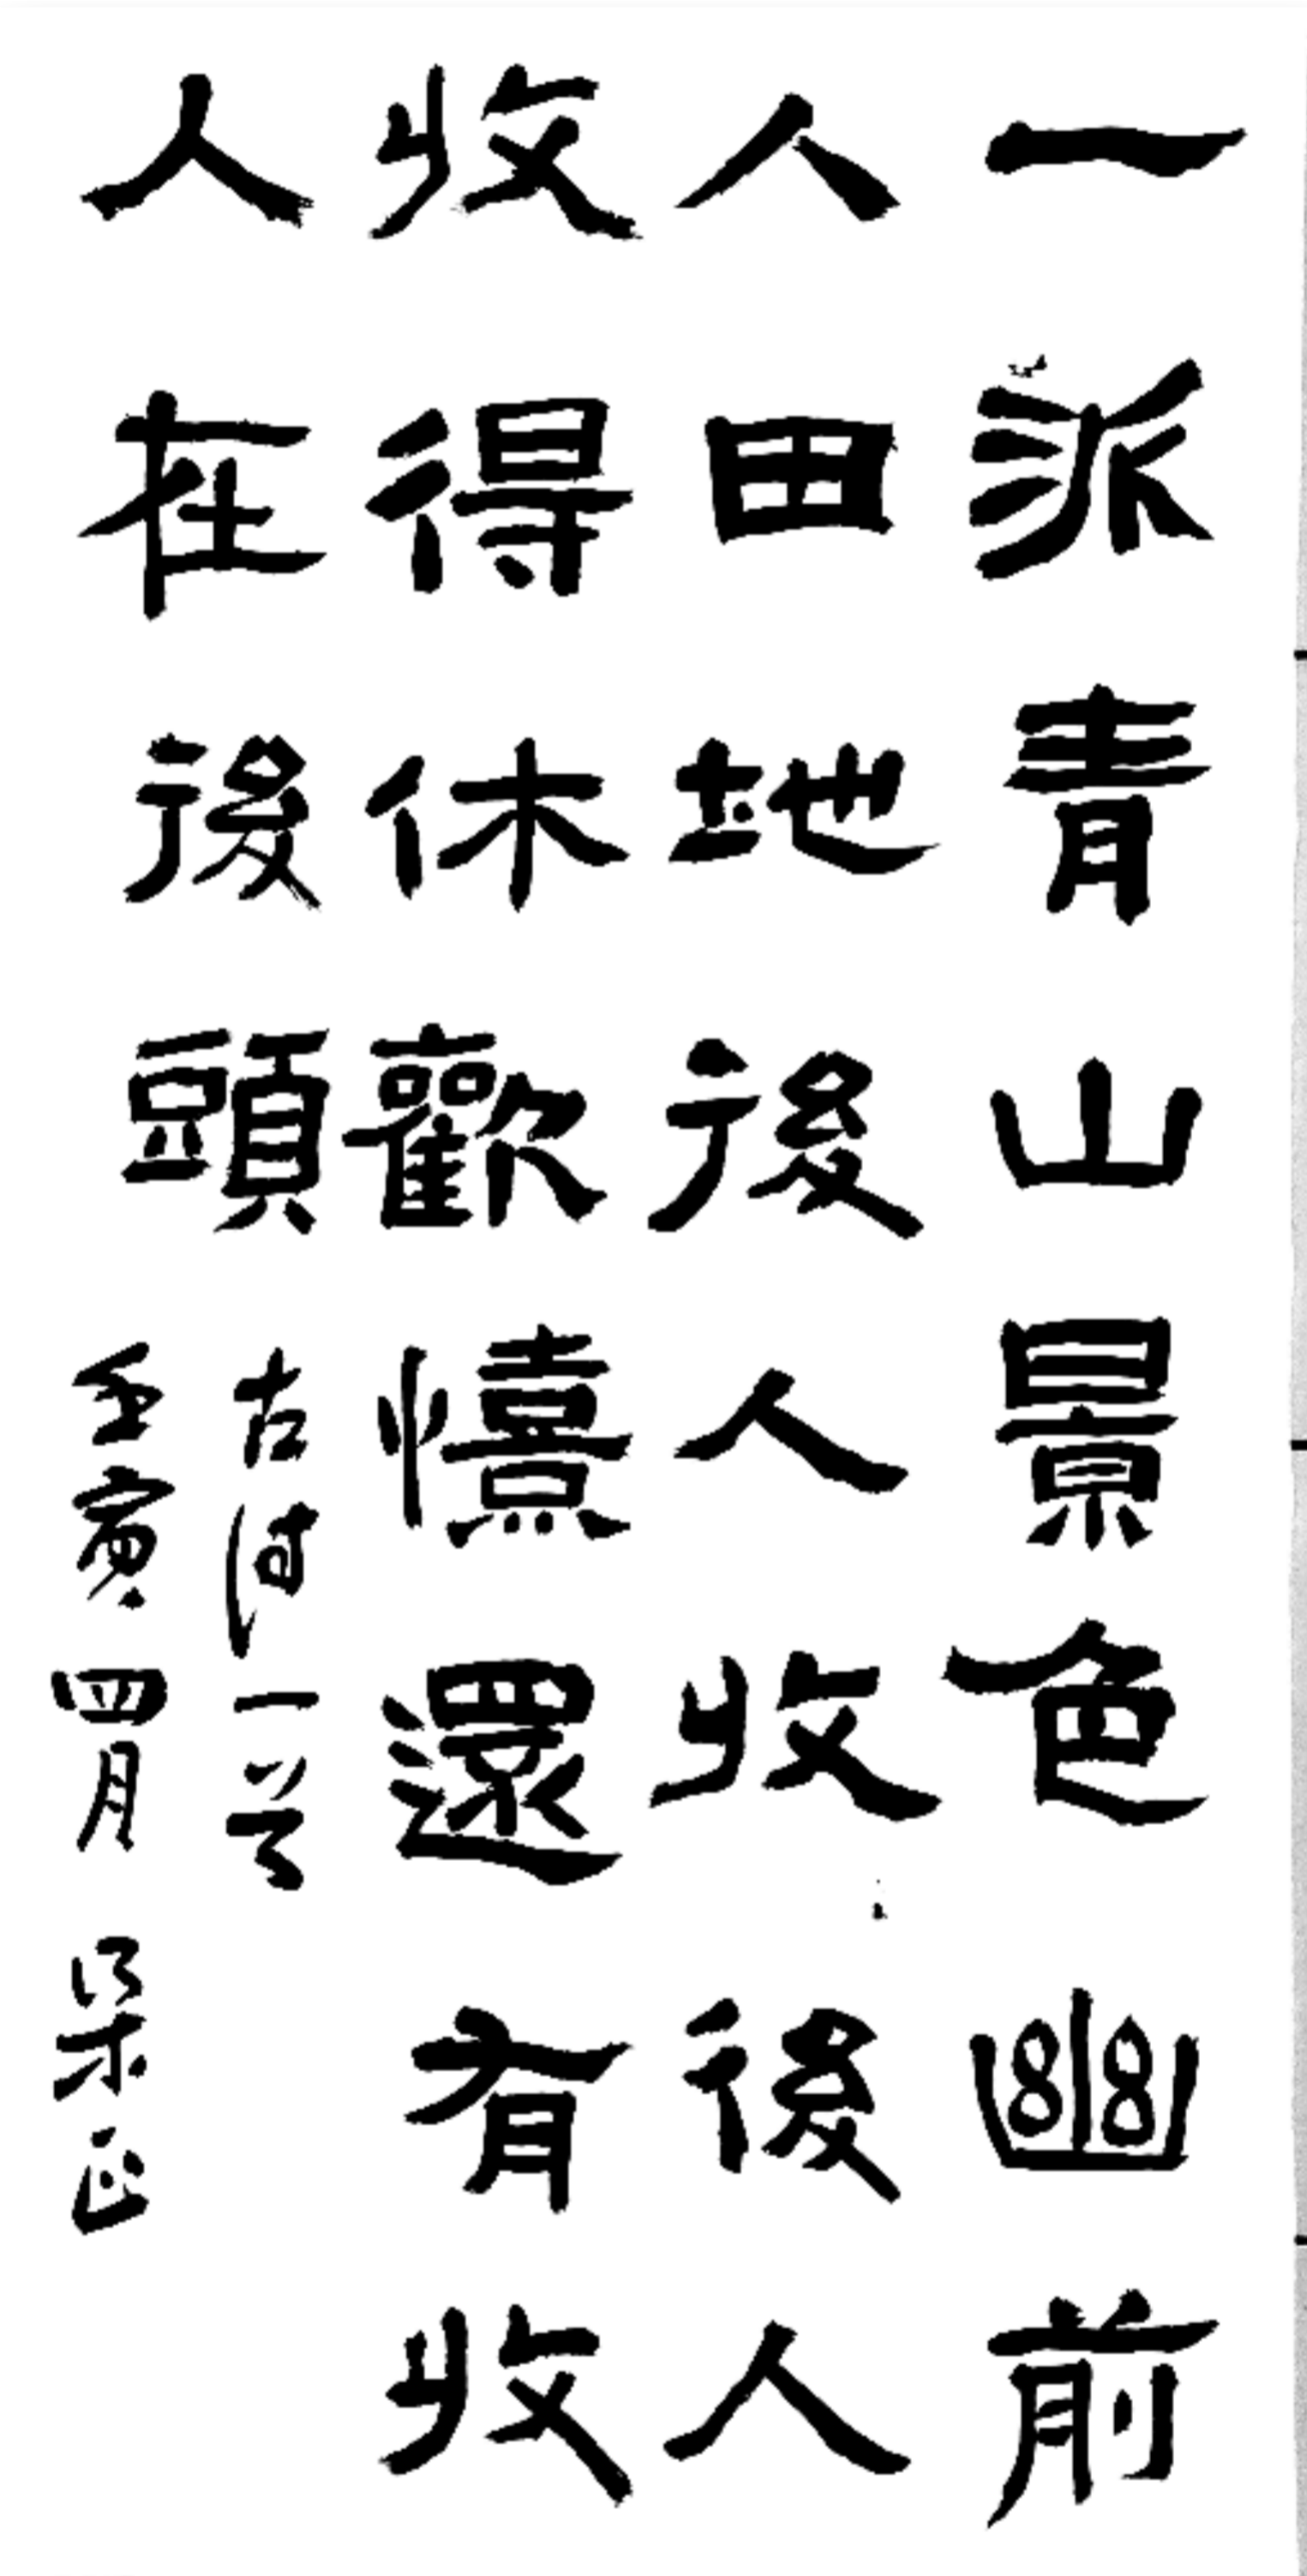 一派青山景色幽前
人田地後人收後人
收得休歡憘還有收
人在後頭
古詩一首
壬寅四月梁正